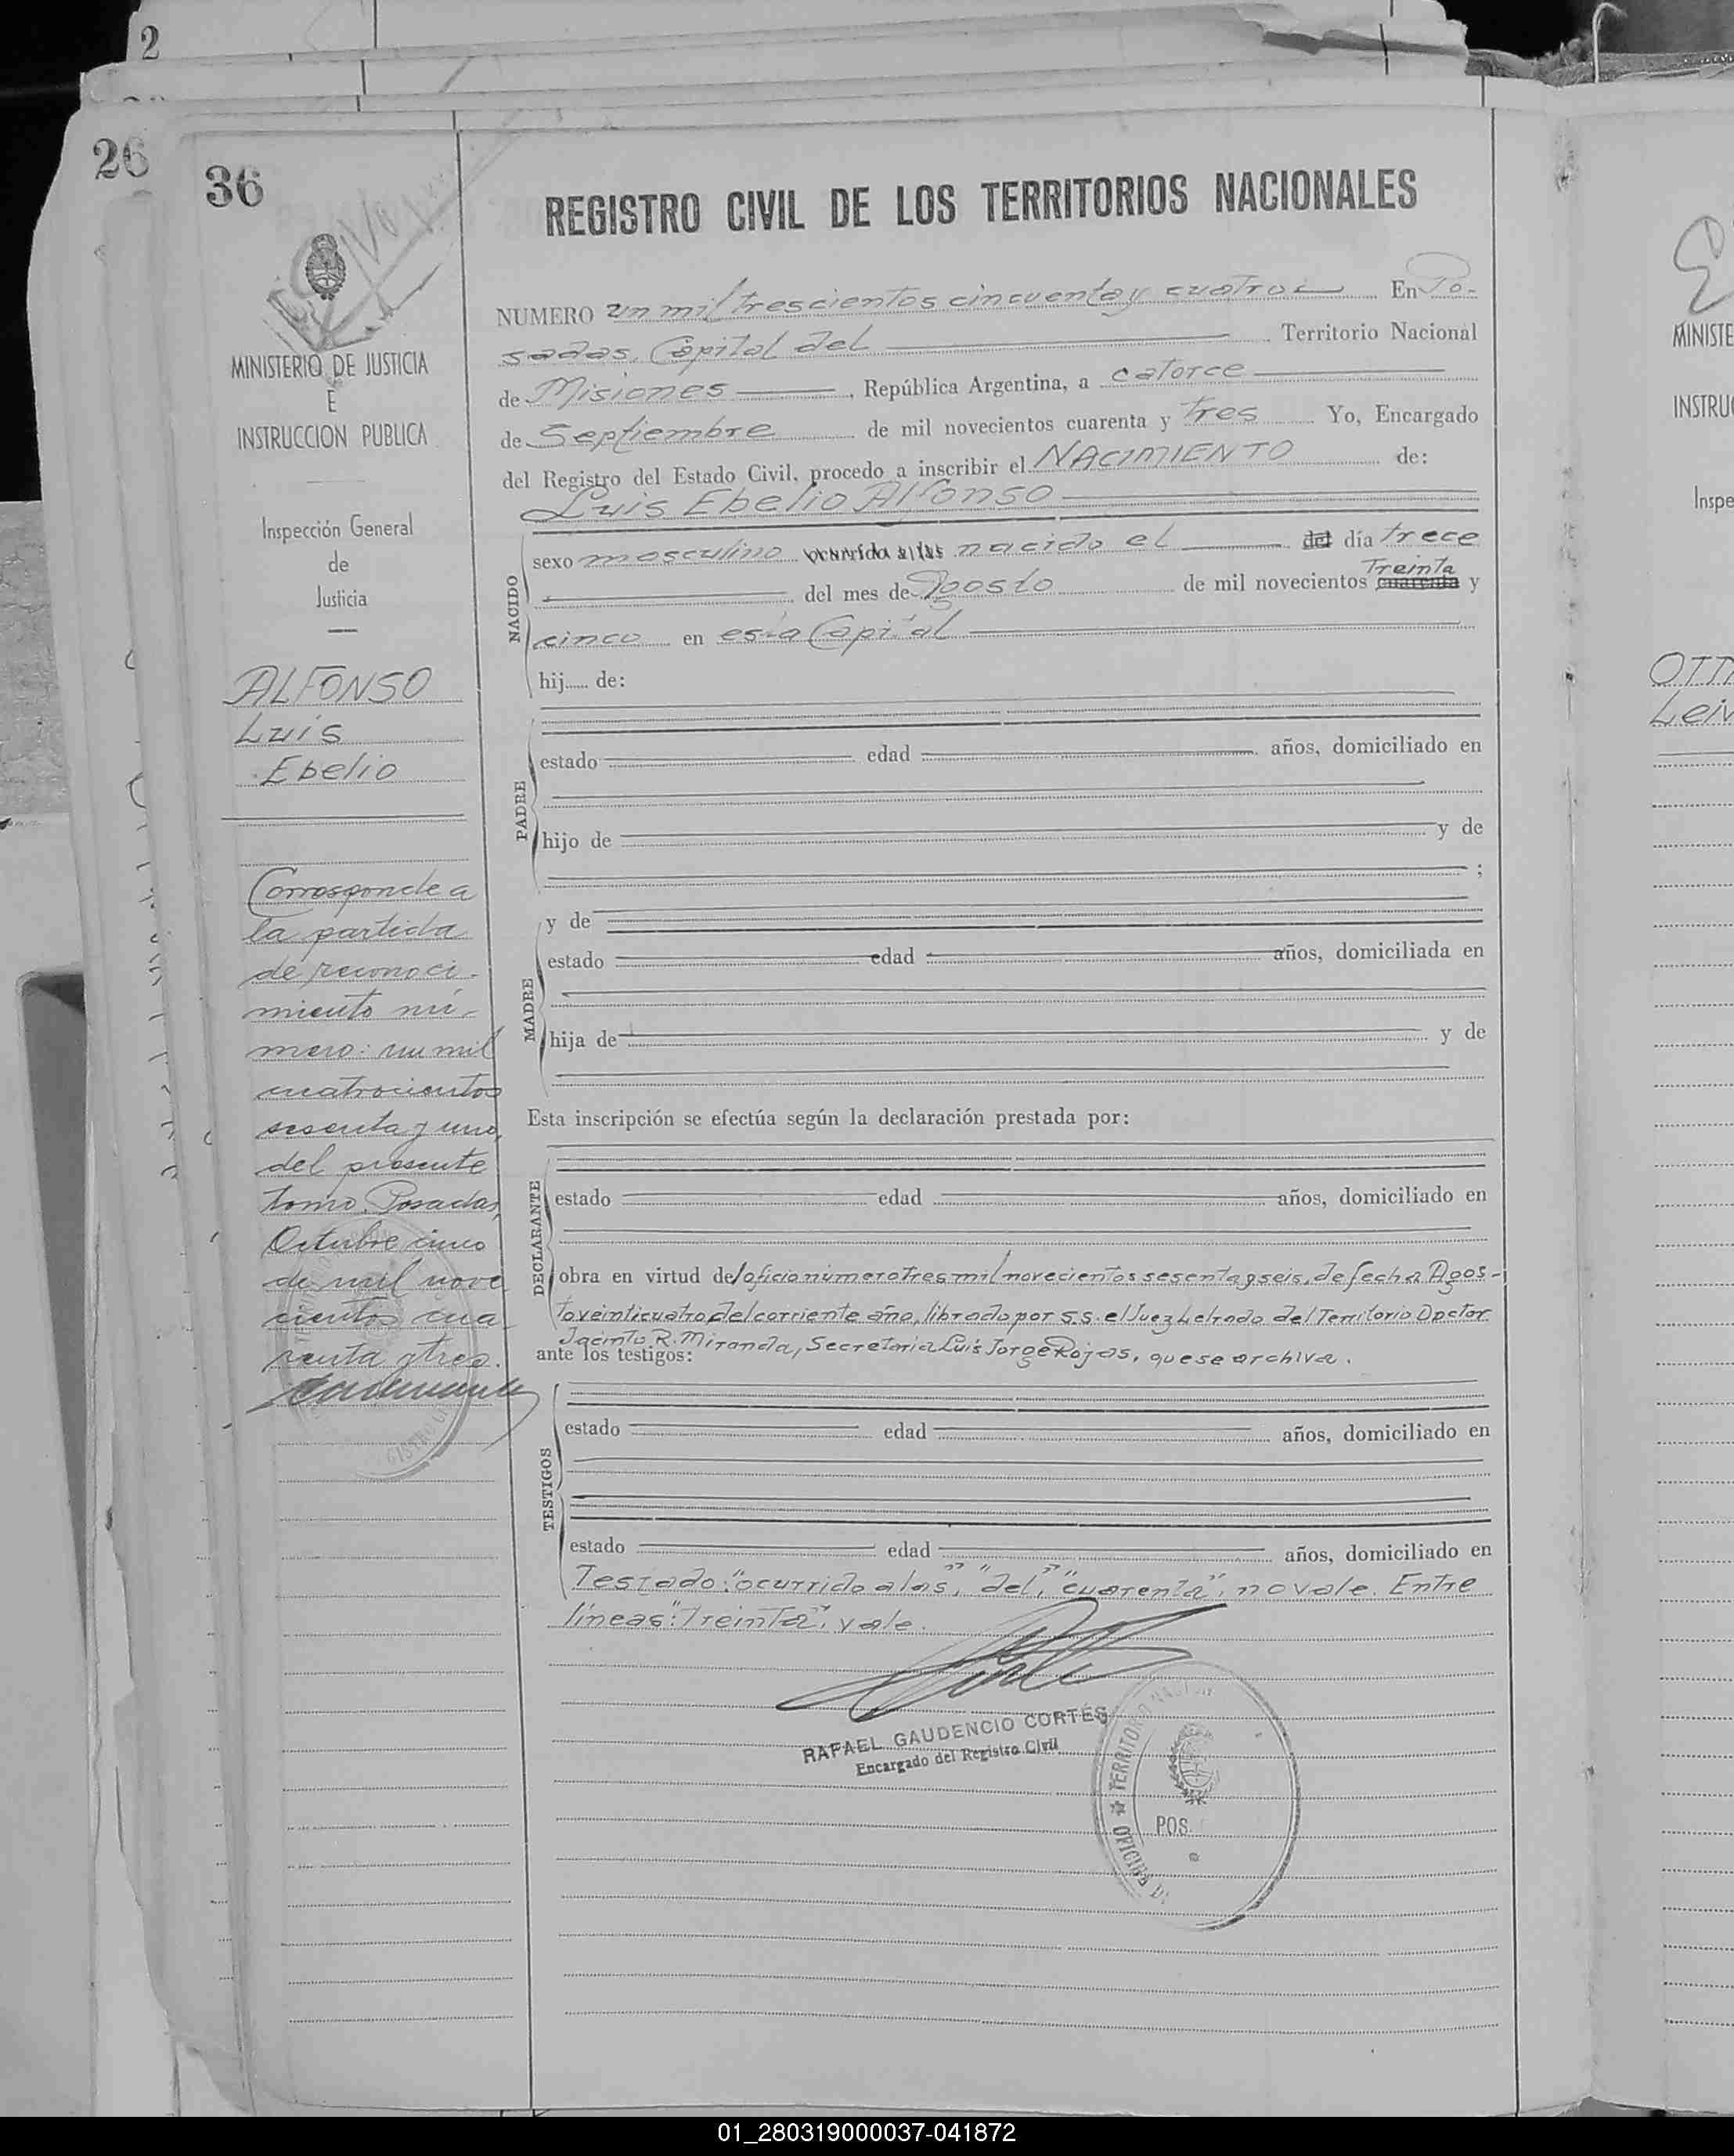 2
26
36
REGISTRO CIVIL DE LOS TERRITORIOS NACIONALES
MINISTERIO DE JUSTICIA
E
INSTRUCCION PUBLICA
Inspección General
de
Justicia
ALFONSO
Luis
Ebelio
Corresponde a
la partida
de reconoci-
miento nú-
mero: un mil
cuatrocientos
sesenta y uno,
del presente
tomo. Posadas,
Octubre cinco
de mil nove
cientos cua-
renta y tres.
NUMERO un mil trescientos cincuenta y cuatro En Po-
sadas, Capital del Territorio Nacional
de Misiones, República Argentina, a catorce
de Septiembre de mil novecientos cuarenta y tres Yo, Encargado
del Registro del Estado Civil, procedo a inscribir el NACIMIENTO de:
Luis Ebelio Alfonso
NACIDO
sexo masculino ocurrido a las nacido el del día trece
Treinta
del mes de Agosto de mil novecientos cuarenta y
cinco en esta Capital
hij...... de:
PADRE
estado edad años, domiciliado en
hijo de y de
;
MADRE
y de
estado edad años, domiciliada en
hija de y de
Esta inscripción se efectúa según la declaración prestada por:
DECLARANTE
estado edad años, domiciliado en
obra en virtud del oficio número tres mil novecientos sesenta y seis, de fecha Agos-
to veinticuatro del corriente año, librado por S.S. el Juez Letrado del Territorio Doctor
Jacinto R. Miranda, Secretaria Luis Jorge Rojas, que se archiva.
ante los testigos:
TESTIGOS
estado edad años, domiciliado en
estado edad años, domiciliado en
Testado: "ocurrido a las", "del", "cuarenta", no vale. Entre
líneas: "Treinta", vale.
RAFAEL GAUDENCIO CORTÉS
Encargado del Registro Civil
TERRITORIO
POS
MINISTE
INSTRUC
Inspe
OTT
Lei
01_280319000037-041872